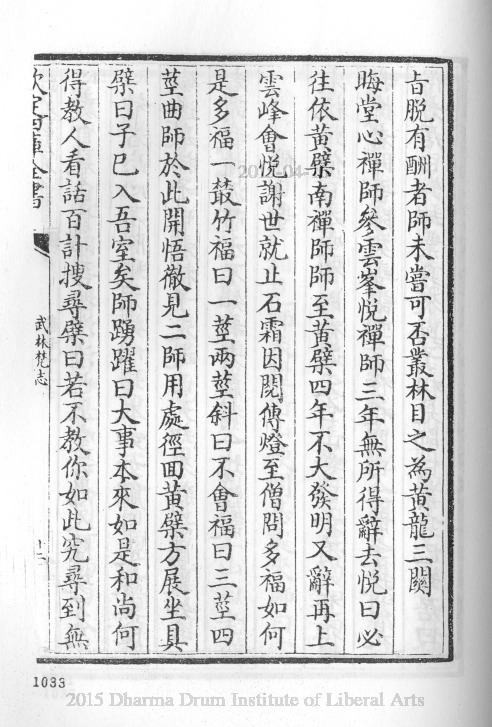 旨脫有酬者師未嘗可否叢林目之為黃龍三闗
晦堂心禪師參雲峯悅禪師三年無所得辭去悅曰必
往依黃檗南禪師師至黃檗四年不大發明又辭再上
雲峰會悅謝世就止石霜因閱傳燈至僧問多福如何
是多福一叢竹福曰一莖兩莖斜曰不會福曰三莖四
莖曲師於此開悟徹見二師用處徑回黃檗方展坐具
檗曰子已入吾室矣師踴躍曰大事本來如是和尚何
得教人看話百計搜尋檗曰若不教你如此究尋到無
欽定四庫全書
武林梵志
十二
1033
2015 Dharma Drum Institute of Liberal Arts